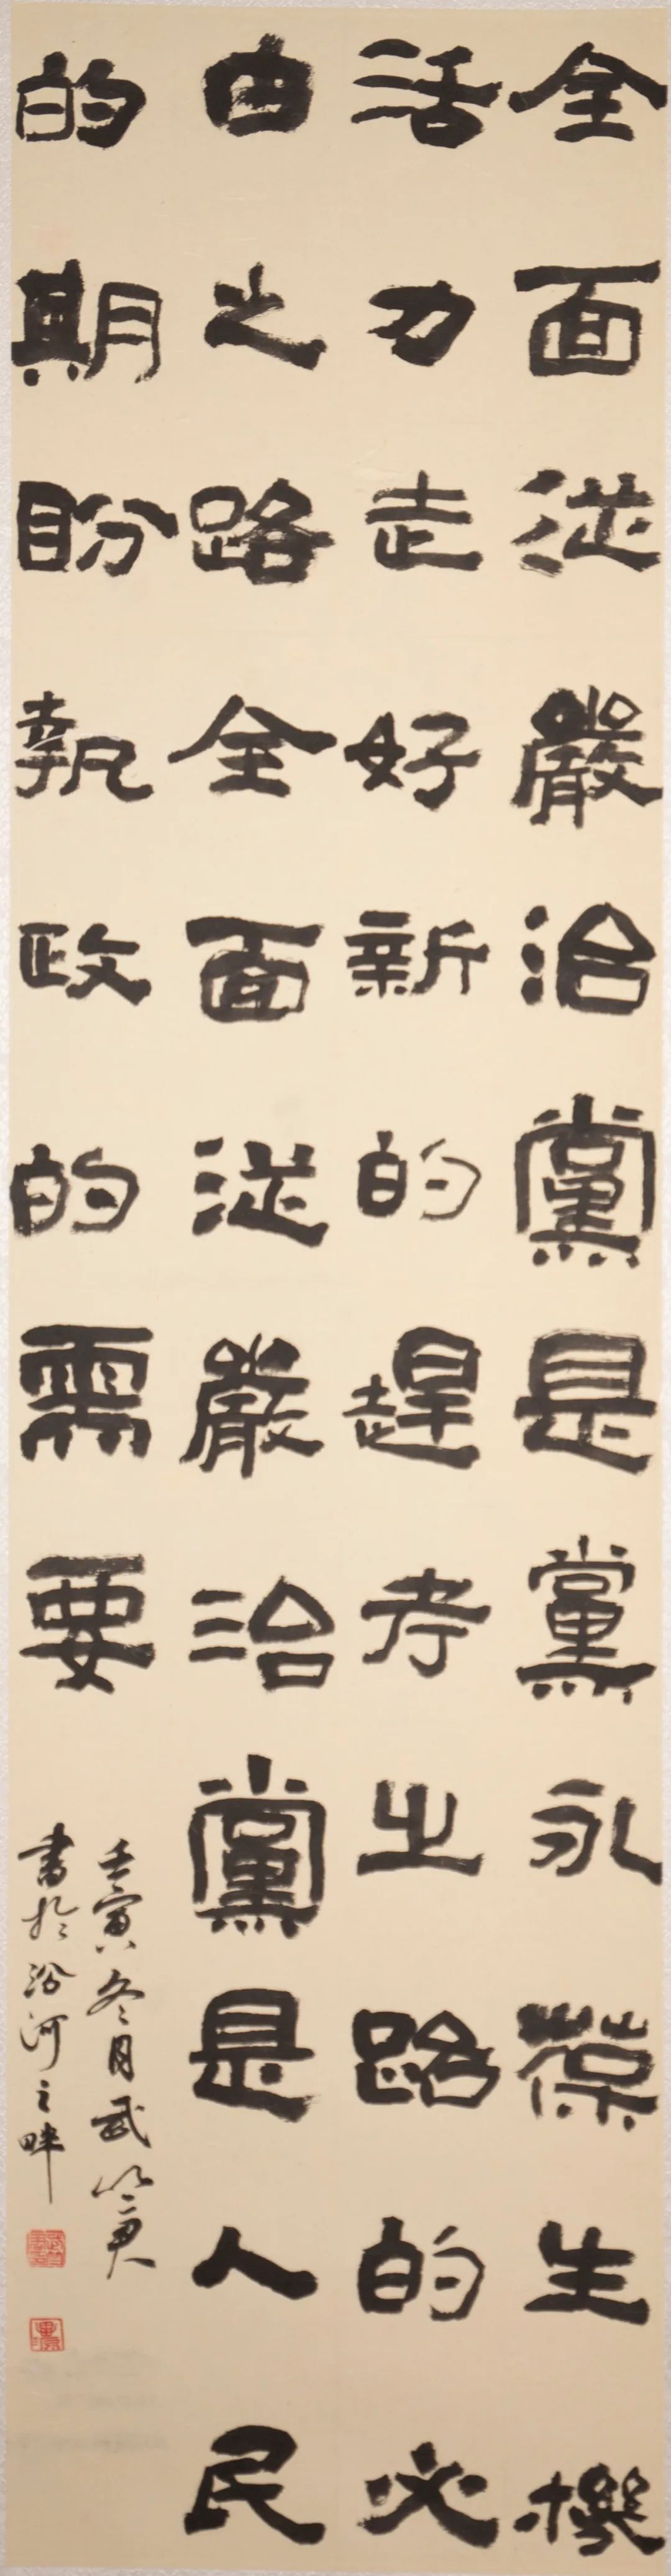 全面從嚴治黨是黨永葆生機
活力走好新的趕考之路的必
由之路全面從嚴治黨是人民
的期盼執政的需要
壬寅冬月武
書於汾河之畔